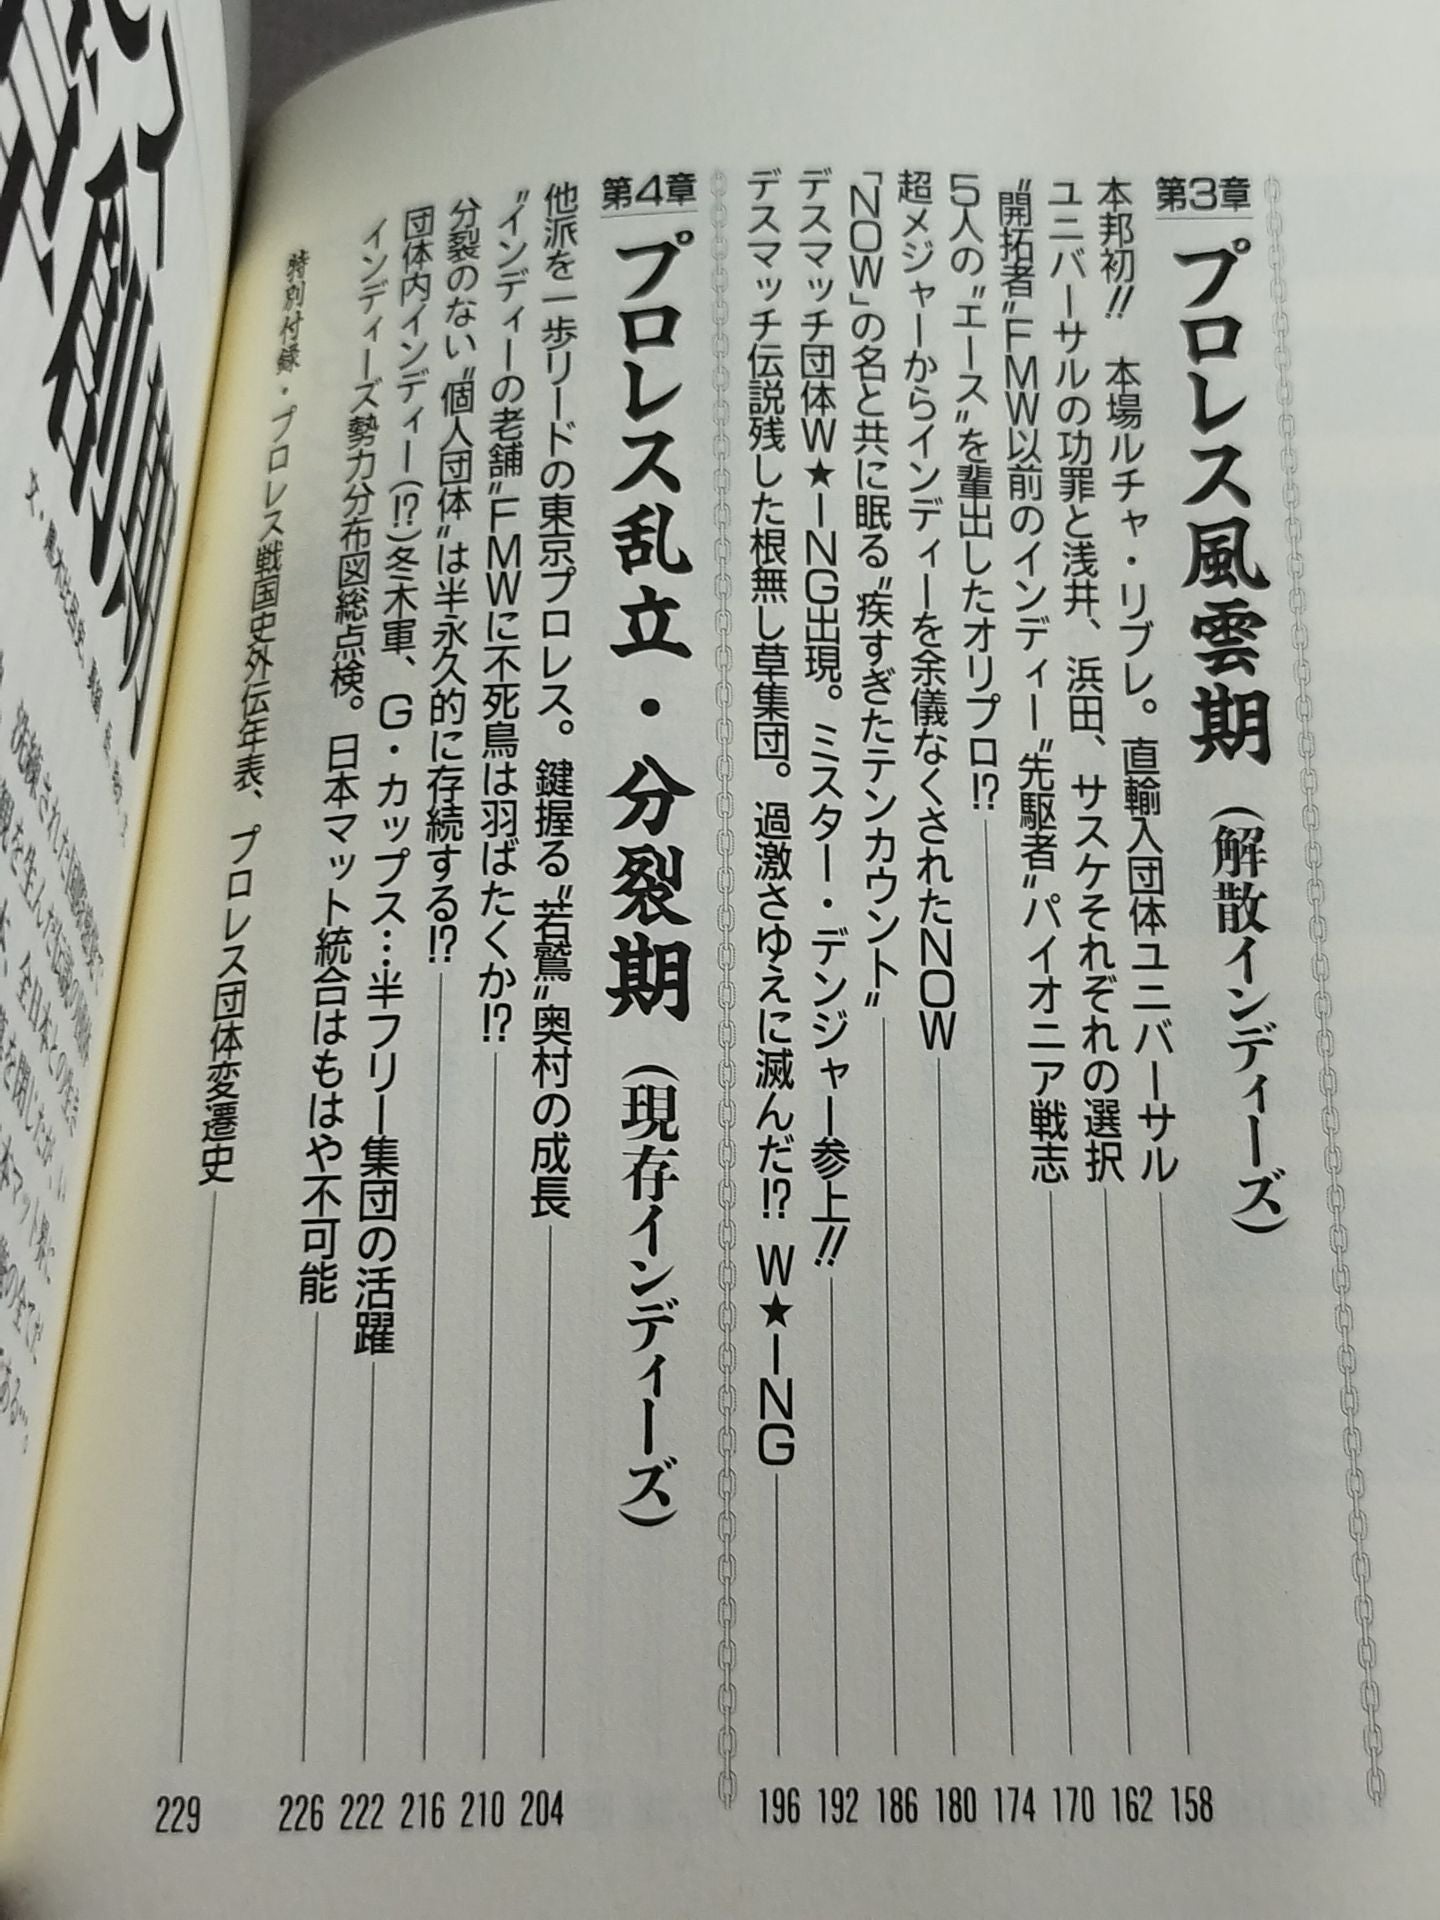 第3章 プロレス風雲期(解散インディーズ)
本邦初!! 本場ルチャ・リブレ。直輸入団体ユニバーサル 158
ユニバーサルの功罪と浅井、浜田、サスケそれぞれの選択 162
〝開拓者〟FMW以前のインディー〝先駆者〟パイオニア戦志 170
5人の〝エース〟を輩出したオリプロ!? 174
超メジャーからインディーを余儀なくされたNOW 180
「NOW」の名と共に眠る〝疾すぎたテンカウント〟 186
デスマッチ団体W★ING出現。ミスター・デンジャー参上!! 192
デスマッチ伝説残した根無し草集団。過激さゆえに滅んだ!? W★ING 196
第4章 プロレス乱立・分裂期(現存インディーズ)
他派を一歩リードの東京プロレス。鍵握る〝若鷲〟奥村の成長 204
〝インディーの老舗〟FMWに不死鳥は羽ばたくか!? 210
分裂のない〝個人団体〟は半永久的に存続する!? 216
団体内インディー(!?)冬木軍、G・カップス…半フリー集団の活躍 222
インディーズ勢力分布図総点検。日本マット統合はもはや不可能 226
特別付録・プロレス戦国史外伝年表、プロレス団体変遷史 229